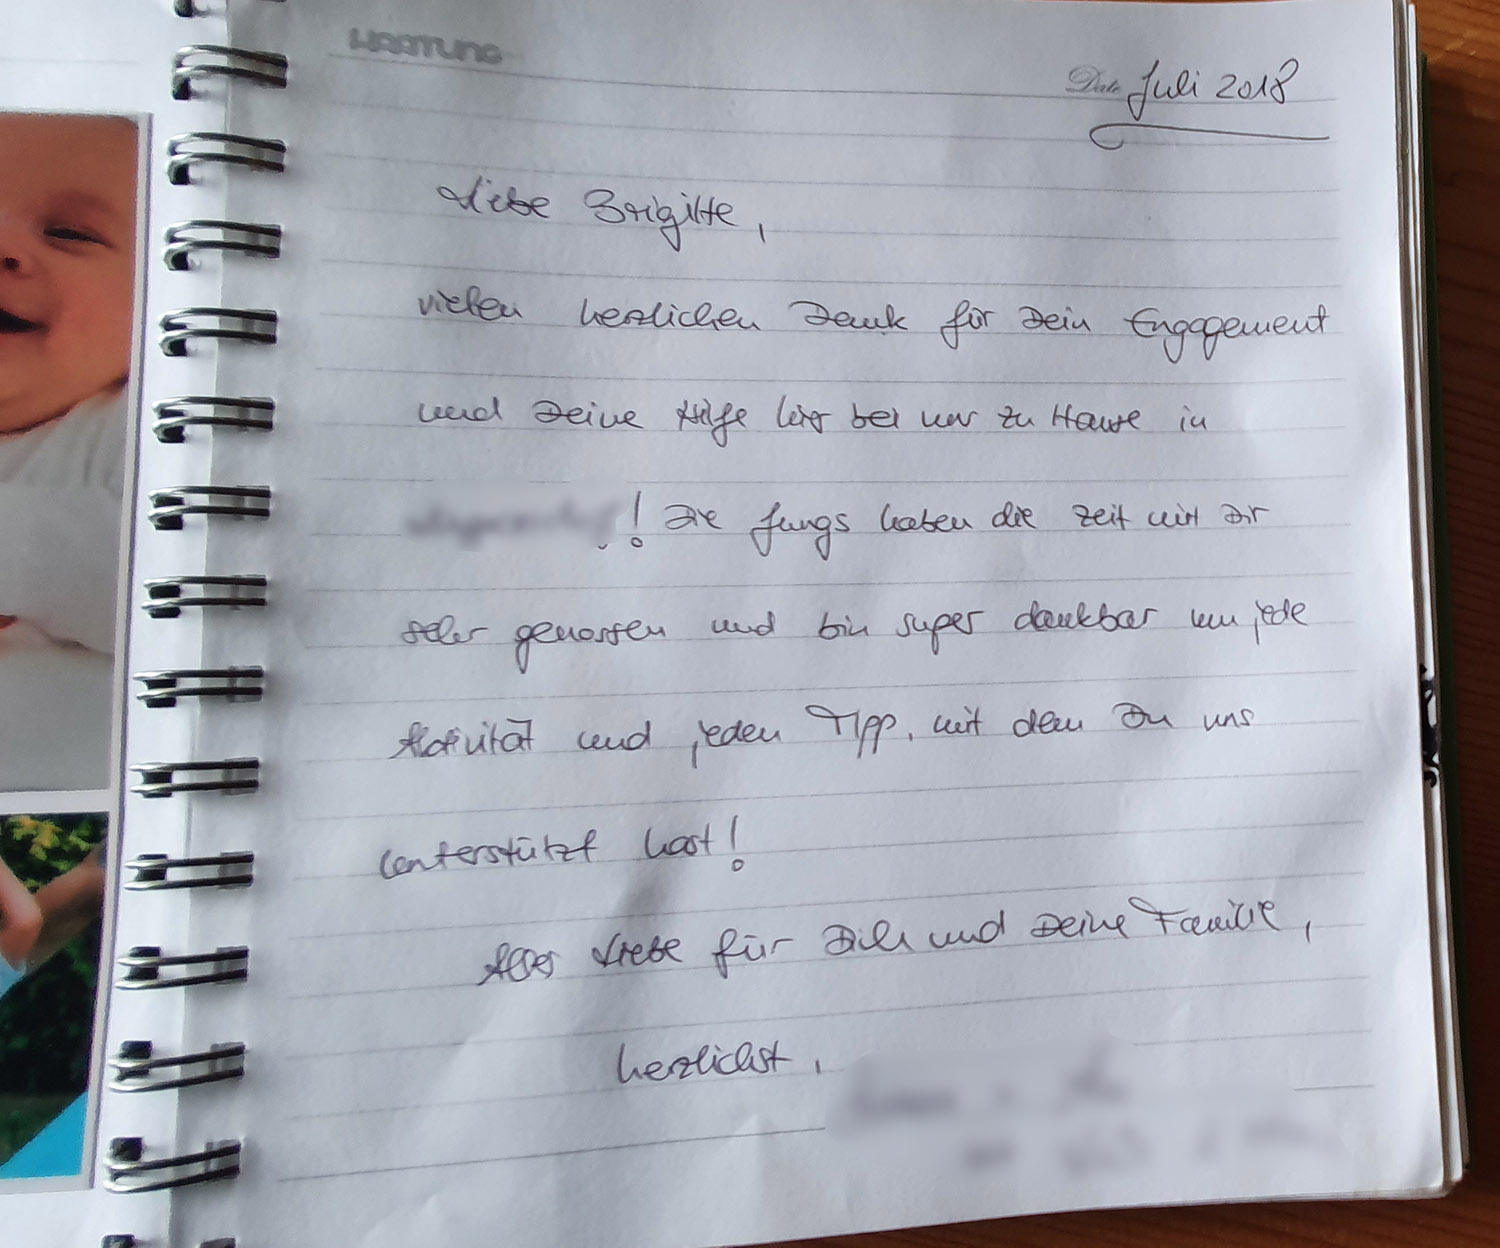 HARTUNG
Date Juli 2018
Liebe Brigitte,
vielen herzlichen Dank für Dein Engagement
und Deine Hilfe hier bei uns zu Hause in
! Die Jungs haben die Zeit mit Dir
sehr genossen und bin super dankbar um jede
Aktivität und jeden Tipp, mit dem Du uns
unterstützt hast!
Alles Liebe für Dich und Deine Familie,
herzlichst,